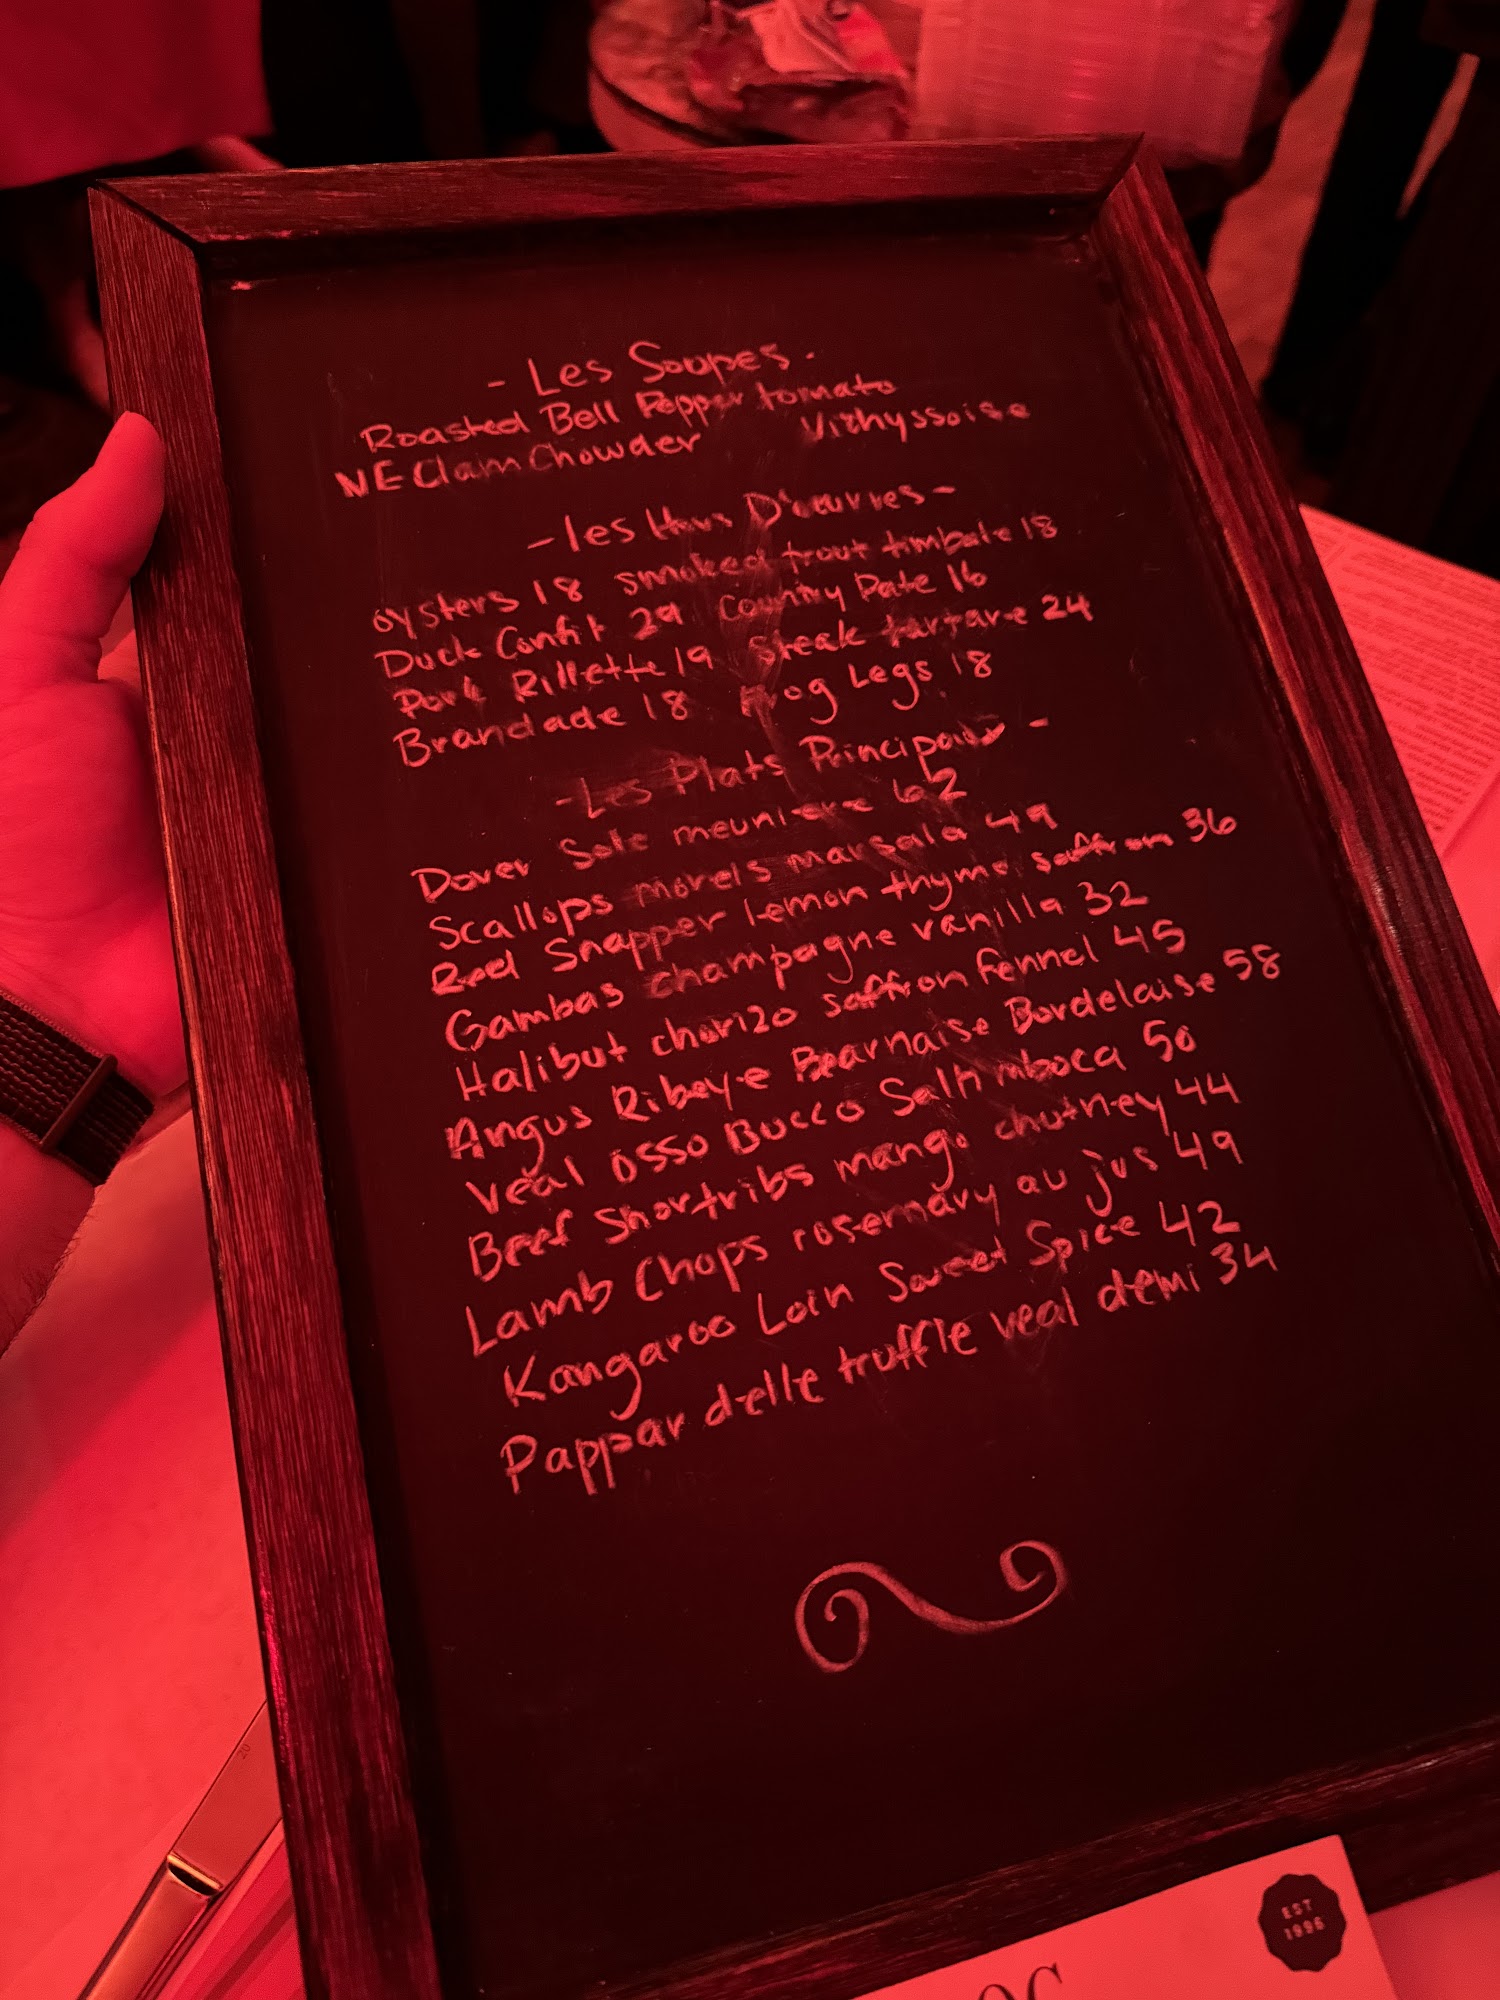 - Les Soupes -
Roasted Bell Pepper tomato
NE Clam Chowder Vichyssoise
- les Hors D'oeuvres -
oysters 18 smoked trout timbale 18
Duck Confit 29 Country Pate 16
Pork Rillette 19 Steak tartare 24
Brandade 18 Frog Legs 18
- Les Plats Principaux -
Dover Sole meuniere 62
Scallops morels marsala 49
Red Snapper lemon thyme saffron 36
Gambas champagne vanilla 32
Halibut chorizo saffron fennel 45
Angus Ribeye Bearnaise Bordelaise 58
Veal Osso Bucco Saltimboca 50
Beef Shortribs mango chutney 44
Lamb Chops rosemary au jus 49
Kangaroo Loin Sweet Spice 42
Pappardelle truffle veal demi 34
20
EST
1996